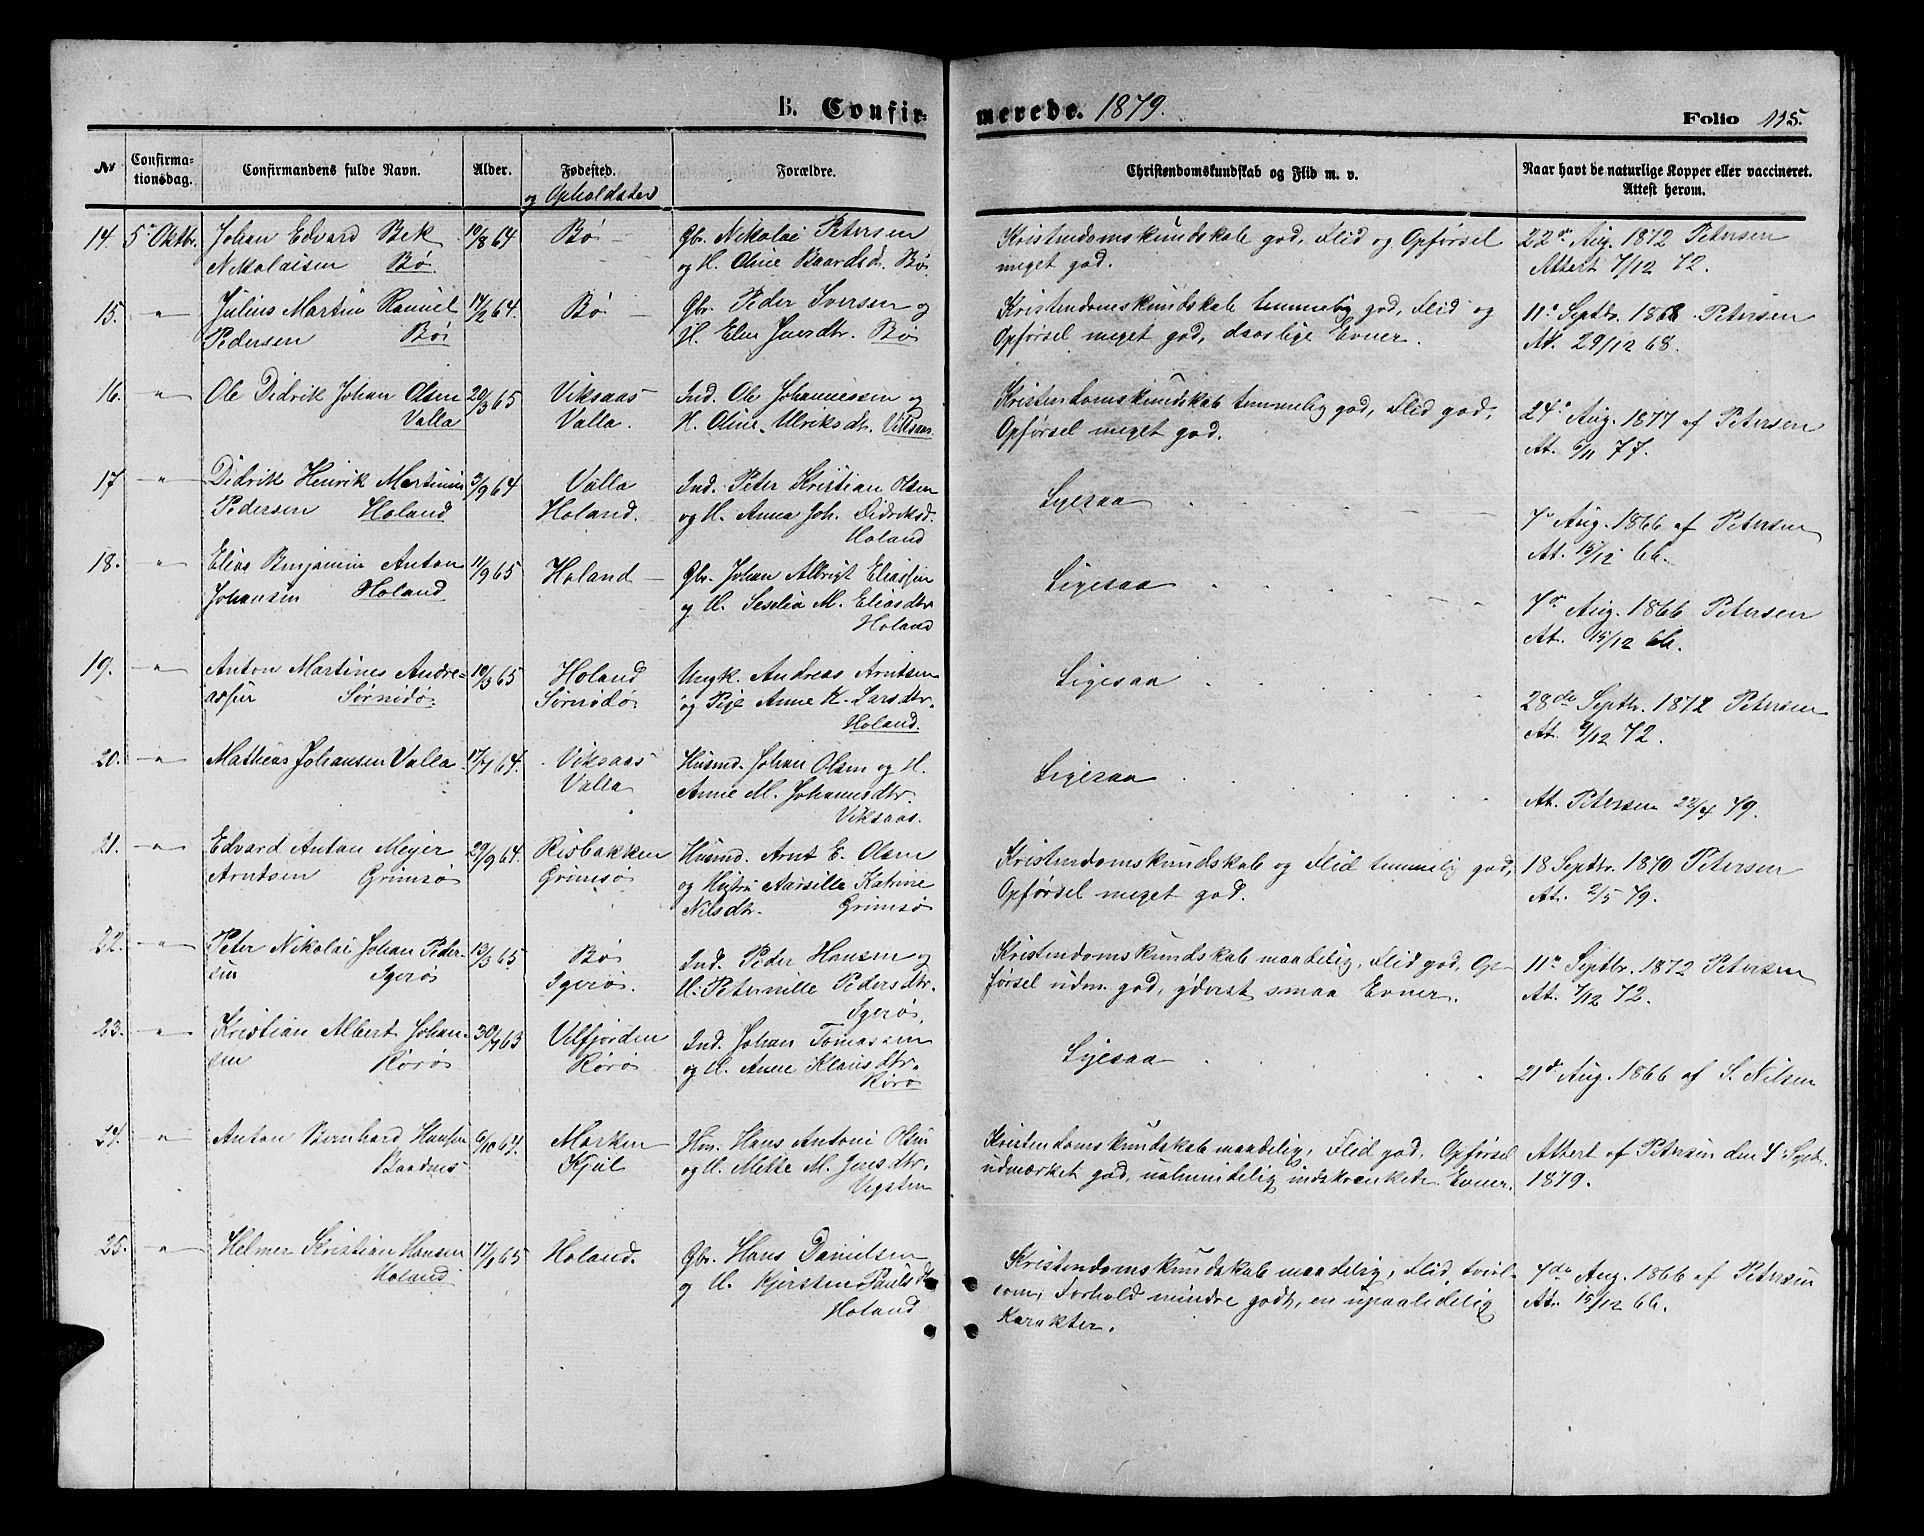 B. Confir-
merede. 1879.
Folio 115.
No
Confirma-
tionsdag.
Confirmandens fulde Navn.
Alder.
Fødested.
og Opholdsted
Forældre.
Christendomskundskab og Flid m. v.
Naar havt de naturlige Kopper eller vaccineret.
Attest herom.
14. 5te Oktbr. Johan Edvard Bek 10/8 64 Bø — Gbr. Nikolai Petersen Kristendomskundskab god, Flid og Opførsel 22de Aug. 1872 Petersen
Nikolaisen Bø. og H. Oline Baardsd. Bø meget god. Attest 7/12 72.
15. " Julius Martin Pedersen 17/2 64. Bø — Gbr. Peder Iversen og Kristendomskundskab temmelig god, Flid og 11te Septbr. 1868 Petersen
Bø H. Elen Jensdtr. Bø Opførsel meget god, daarlige Evner. At. 29/12 68.
16. " Ole Didrik Johan Olsen 20/3 65 Viksaas Ind. Ole Johannessen og Kristendomskundskab temmelig god, Flid god, 24de Aug. 1877 af Petersen
Valla Valla. H. Oline Ulriksdtr. Viksaas Opførsel meget god. At. 6/11 77.
17 " Didrik Henrik Martinus 3/9 64 Valla Ind. Peter Kristian Olsen Ligesaa
Pedersen Holand Holand. og H. Anna Joh. Didriksd. 7de Aug. 1866 af Petersen
Holand At. 15/12 66.
18. " Elias Benjamin Anton 11/9 65 Holand — Gbr. Johan Albrigt Eliassen Ligesaa
Johansen Holand og H. Seselia M. Eliasdtr 7de Aug. 1866 Petersen
Holand At. 15/12 66.
19. " Anton Martines Andre- 10/3 65 Holand Ungk. Andreas Arntsen Ligesaa
assen og Pige Anne K. Larsdtr. 28de Septbr. 1872 Petersen
Holand. At. 9/12 72.
20. " Mathias Johansen Valla 17/7 64. Viksaas Husmd. Johan Olsen og H. Ligesaa
Valla Anne M. Johannesdtr. At. Petersen 22/4 79.
Viksaas.
21. " Edvard Anton Meyer 29/9 64. Risbakken Husmd. Arnt E. Olsen Kristendomskundskab og Flid temmelig god, 18 Septbr. 1870 Petersen
Arntsen Grimsø Grimsø og Hustru Aarsille Katrine Opførsel meget god. At. 2/5 79.
Nilsdtr. Grimsø
22. " Peter Nikolai Johan Peder- 13/3 65 Bø Ind. Peder Hansen og Kristendomskundskab maadelig, Flid god, Op- 11te Septbr. 1872 Petersen
sen Igerøs Igerøs. H. Peternille Pedersdtr. førsel udm. god, yderst smaa Evner. At. 7/12 72.
Igerøs.
23. " Kristian Albert Johan- 30/7 63 Velfjorden Ind. Johan Tomassen Ligesaa
sen Rørøs Rørøs og H. Anne Klausdtr. 21de Aug. 1866 af S. Nilsen
Rørø
24. " Anton Bernhard Hansen 6/10 64. Marken Hans Antoni Olsen Kristendomskundskab maadelig, Flid god, Opførsel Attest af Petersen den 4 Septbr.
Kjul og H. Mette M. Jensdtr. udmærket god, ualmindelig indskrænkede Evner. 1879.
Vegsten
25. " Helmer Kristian Hansen 17/1 65 Holand. Gbr. Hans Danielsen Kristendomskundskab maadelig, Flid tvivl- 7de Aug. 1866 af Petersen
Holand og H. Kjersten Paulsdtr som, Forhold mindre godt, en upaalidelig At. 15/12 66.
Holand Karakter.